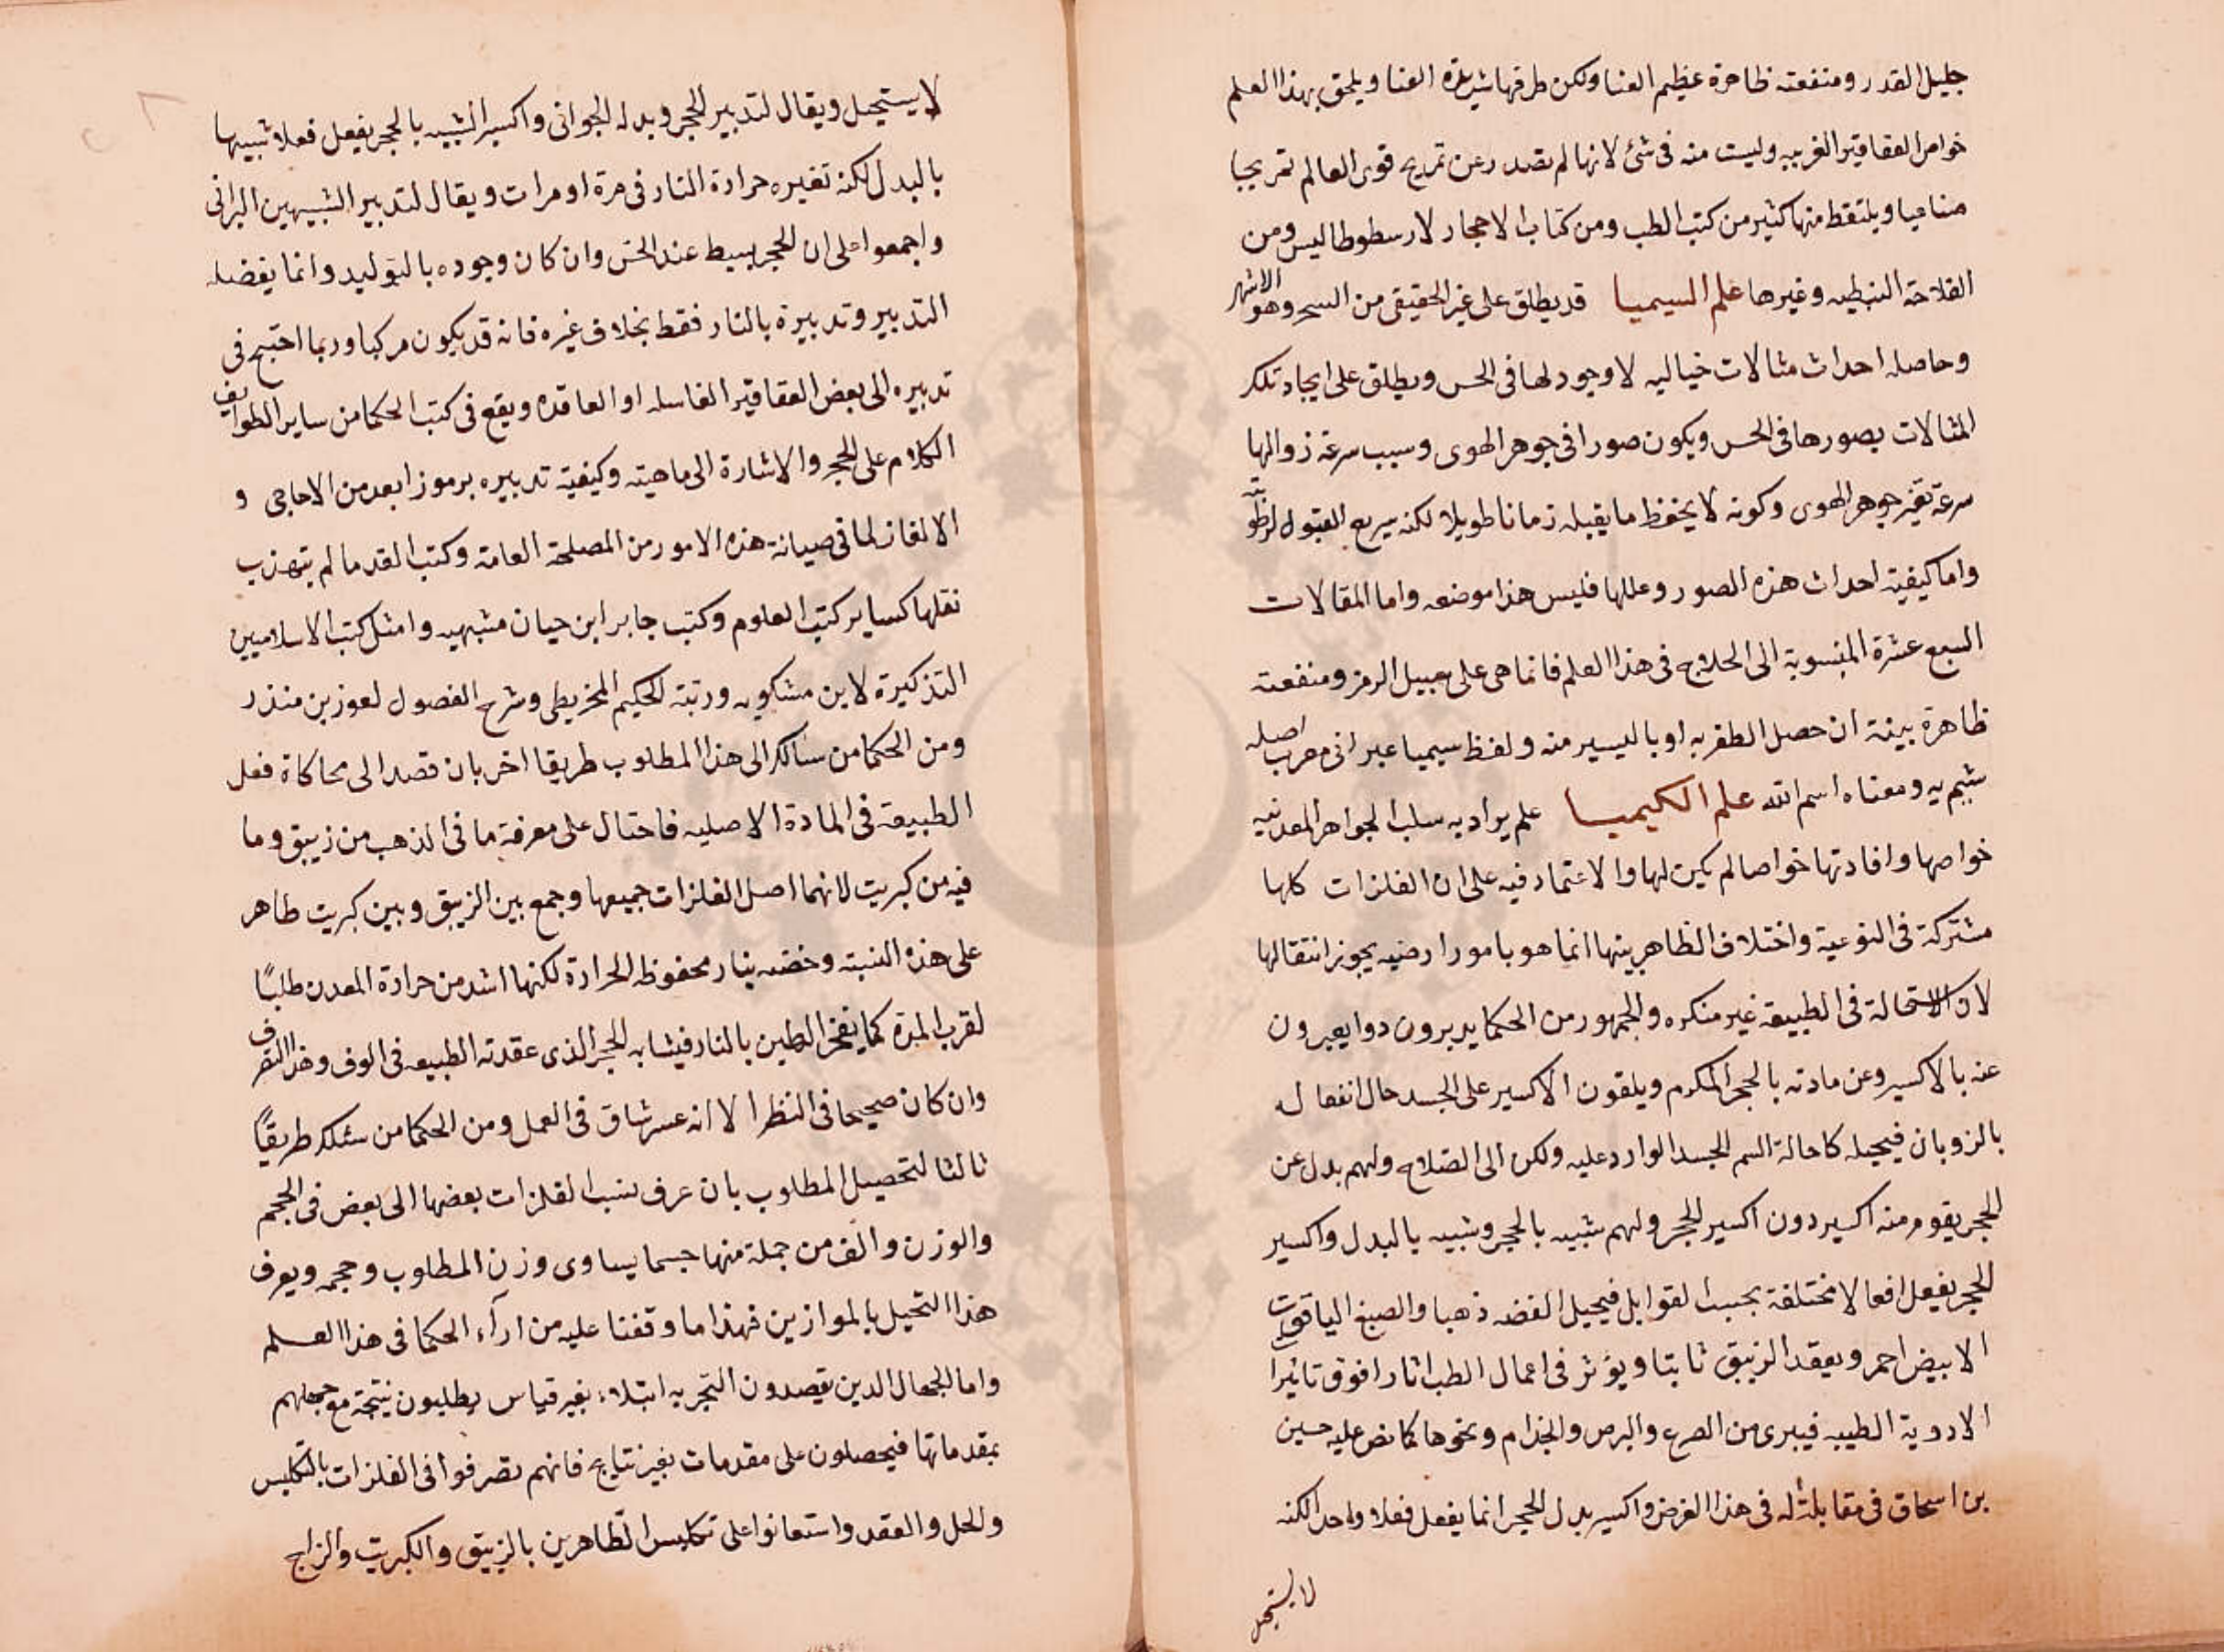 جليل القدر ومنفعته ظاهرة عظيم الغنا ولكن طرقها شديدة العنا ويلحق بهذا العلم
خواص العقاقير الغريبه وليست منه في شئ لانها لم تصدر عن تمريج قوى العالم تمريجا
صناعيا ويلتقط منها كثير من كتب الطب ومن كتاب الاحجار لارسطوطاليس ومن
الفلاحة النبطيه وغيرها علم السيميا قد يطلق على غير الحقيقي من السحر وهو الاشهر
وحاصله احداث مثالات خياليه لا وجود لها في الحس ويطلق على ايجاد تلك
المثالات بصورها في الحس ويكون صورا في جوهر الهوى وسبب سرعة زوالها
سرعة تغير جوهر الهوى وكونه لا يحفظ ما يقبله زمانا طويلا لكنه سريع القبول لرطوبته
واما كيفية احداث هذه الصور وعللها فليس هذا موضعه واما المقالات
السبع عشرة المنسوبة الى الحلاج في هذا العلم فانما هي على سبيل الرمز ومنفعته
ظاهرة بينة ان حصل الظفر به او باليسير منه ولفظ سيميا عبراني معرب اصله
شيم يه ومعناه اسم الله علم الكيميا علم يراد به سلب الجواهر المعدنيه
خواصها وافادتها خواصا لم يكن لها والاعتماد فيه على ان الفلزات كلها
مشتركة في النوعية واختلاف الظاهر بينها انما هو بامور ارضيه يجوز انتقالها
لان الاستحالة في الطبيعة غير منكره والجمهور من الحكما يدبرون دوا يعبرون
عنه بالاكسير وعن مادته بالحجر المكرم ويلقون الاكسير على الجسد حال انفعاله
بالزوبان فيحيله كاحالة السم الجسد الوارد عليه ولكن الى الصلاح ولهم بدل عن
الحجر يقوم منه اكسير دون اكسير الحجر ولهم شبيه بالحجر وشبيه بالبدل واكسير
الحجر يفعل افعالا مختلفة بحسب القوابل فيحيل الفضه ذهبا والصبغ الياقوت
الابيض احمر ويعقد الزيبق ثابتا ويؤثر في اعمال الطب اثارا فوق تاثيرا
الادوية الطيبه فيبرى من الصرع والبرص والجذام ونحوها كما نص عليه حسين
بن اسحاق في مقابلة له في هذا الغرض واكسير بدل الحجر انما يفعل فعلا واحدا لكنه
لا يستحيل
لا يستحيل ويقال لتدبير الحجر وبدله الجواني واكسير الشبيه بالحجر يفعل فعلا شبيها
بالبدل لكنه تغيره حرارة النار في مرة او مرات ويقال لتدبير الشبيهين البراني
واجمعوا على ان الحجر بسيط عند الحس وان كان وجوده بالتوليد وانما يفضله
التدبير وتدبيرة بالنار فقط بخلاف غيره فانه قد يكون مركبا وربما احتيج في
تدبيره الى بعض العقاقير الغاسله او العاقده ويقع في كتب الحكما من ساير الطوايف
الكلام على الحجر والاشارة الى ماهيته وكيفية تدبيره برموز ابعد من الاحاجي و
الالغاز لما في صيانة هذه الامور من المصلحة العامة وكتب القدما لم يتهذب
نقلها كساير كتب العلوم وكتب جابر ابن حيان مشبهه وامثل كتب الاسلاميين
التذكيرة لابن مشكويه ورتبة الحكيم المخريطي وشرح الفصول لعوز بن منذر
ومن الحكما من سالك الى هذا المطلوب طريقا اخر بان قصد الى محاكاة فعل
الطبيعة في المادة الاصليه فاحتال على معرفة ما في الذهب من زيبق وما
فيه من كبريت لانهما اصل الفلزات جميعها وجمع بين الزيبق وبين كبريت طاهر
على هذه النسبة وحضنه بنار محفوظه الحرارة لكنها اشد من حرارة المعدن طلبًا
لقرب المدة كما يفخر الطين بالنار فيشابه الحجر الذى عقدته الطبيعه في الوف وهذا التصرف
وان كان صحيحا في النظر الا انه عسر شاق في العمل ومن الحكما من سلك طريقًا
ثالثا لتحصيل المطلوب بان عرف نسب الفلزات بعضها الى بعض في الحجم
والوزن والف من جملة منها جسما يساوى وزن المطلوب وحجمه ويعرف
هذا التحيل بالموازين فهذا ما وقفنا عليه من ارآء الحكما في هذا العلم
واما الجهال الدين يقصدون التجربه ابتلاء بغير قياس يطلبون نتيجة مع جهلهم
بمقدماتها فيحصلون على مقدمات بغير نتايج فانهم تصرفوا في الفلزات بالتكليس
والحل والعقد واستعانوا على تكليس الظاهرين بالزيبق والكبريت والزاج